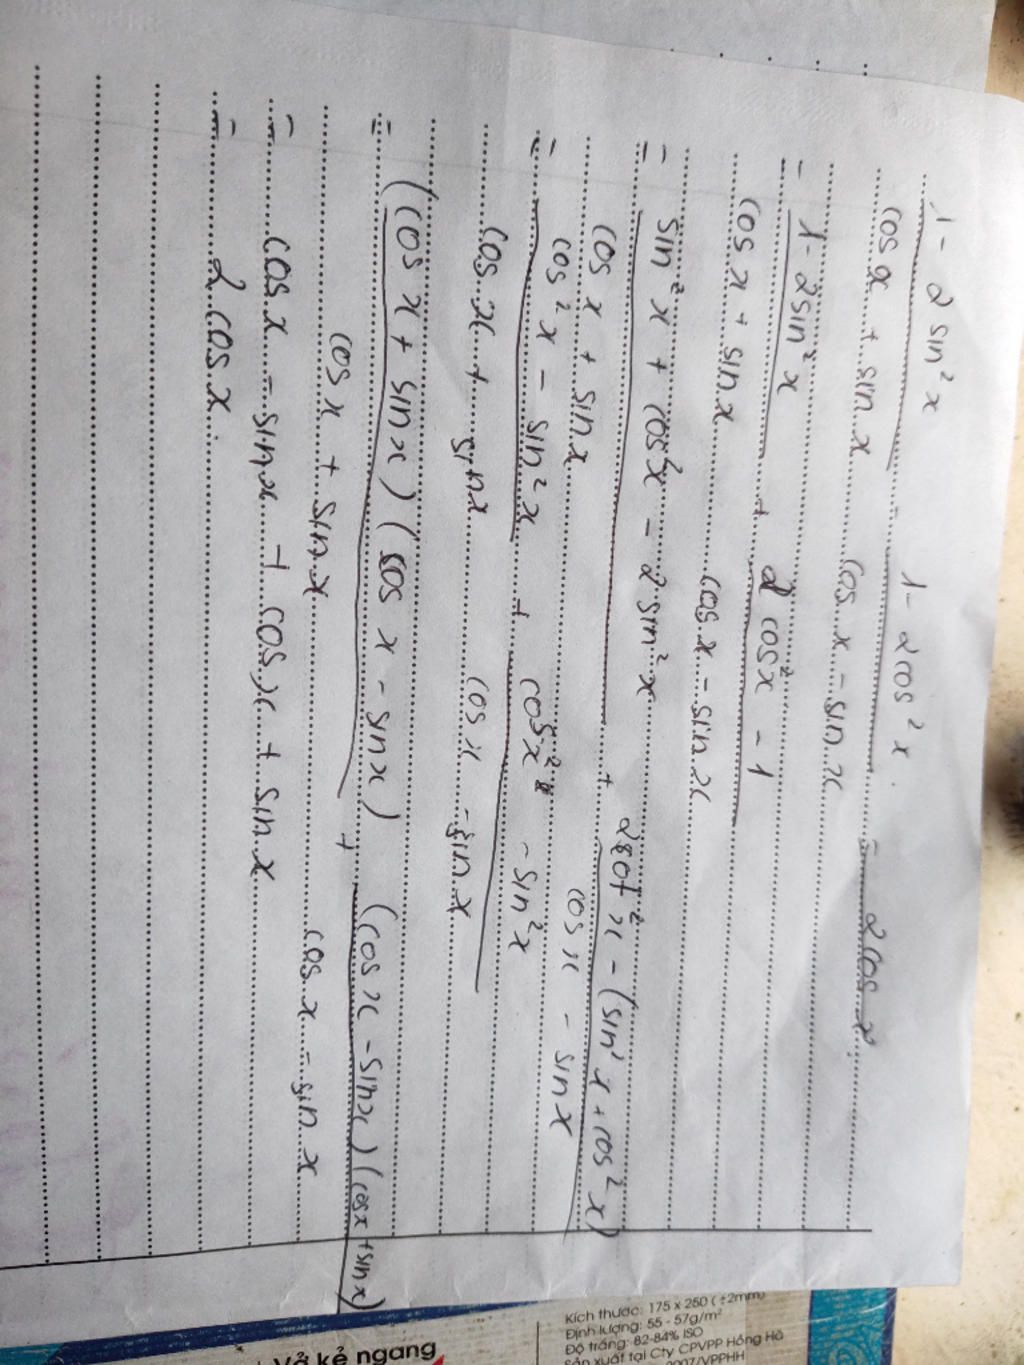 1 - 2 sin² x - 1 - 2 cos² x = 2 cos x
cos x + sin x cos x - sin x
= 1 - 2 sin² x + 2 cos² x - 1
cos x + sin x cos x - sin x
= sin² x + cos² x - 2 sin² x + 2 cos² x - (sin² x + cos² x)
cos x + sin x cos x - sin x
= cos² x - sin² x + cos² x - sin² x
cos x + sin x cos x - sin x
= (cos x + sin x) (cos x - sin x) + (cos x - sin x) (cos x + sin x)
cos x + sin x cos x - sin x
= cos x - sin x + cos x + sin x
= 2 cos x.
Kích thước: 175 x 250 (±2mm)
Định lượng: 55 - 57g/m²
Độ trắng: 82-84% ISO
Sản xuất tại Cty CPVPP Hồng Hà
Vở kẻ ngang